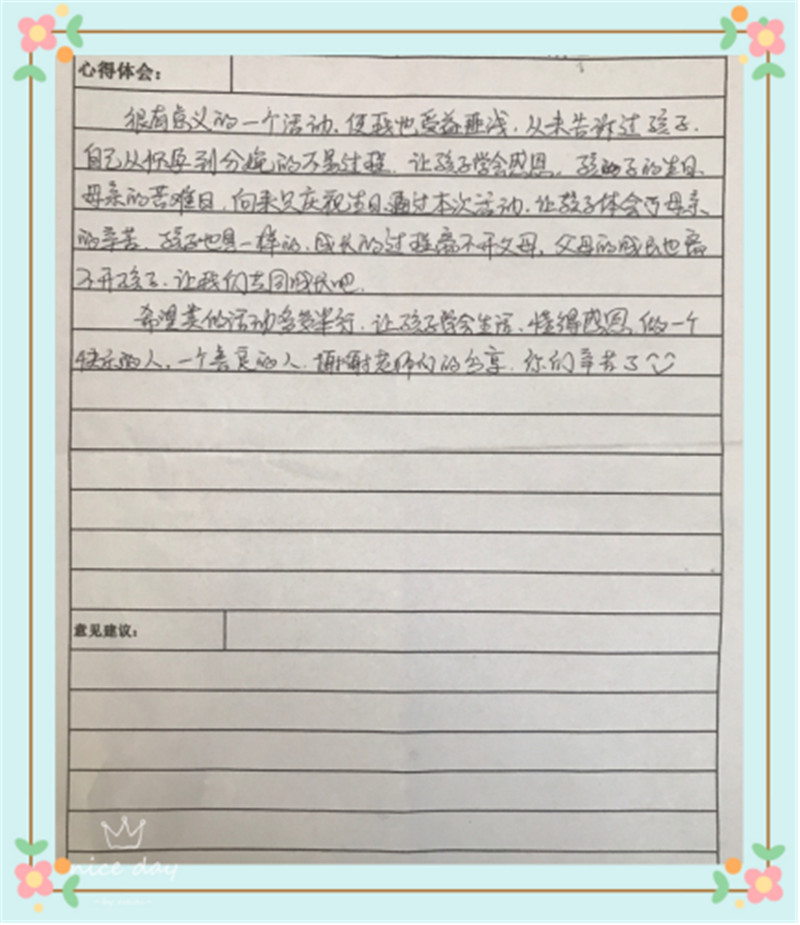 心得体会：
很有意义的一个活动，使我也受益匪浅，从来告诉过孩子，
自己从怀孕到分娩的不易过程，让孩子学会感恩，孩子的生日，
母亲的苦难日，向来只庆祝生日，通过本次活动，让孩子体会母亲
的辛苦，孩子也是一样的，成长的过程离不开父母，父母的成长也离
不开孩子，让我们共同成长吧。
希望类似活动多多举行，让孩子学会生活，懂得感恩，做一个
快乐的人，一个善良的人，谢谢老师们的分享，你们辛苦了
意见建议：
nice day